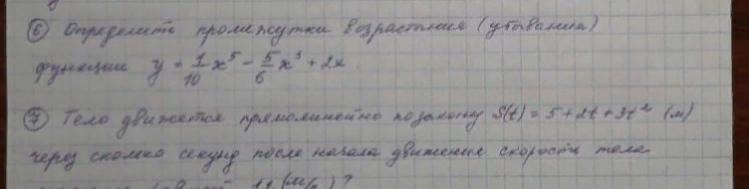 ⑥ Определить промежутки возрастания (убывания)
функции y = 1/10 x⁵ - 5/6 x³ + 2x.
⑦ Тело движется прямолинейно по закону S(t) = 5 + 2t + 3t² (м)
через сколько секунд после начала движения скорость тела
(м/с)?